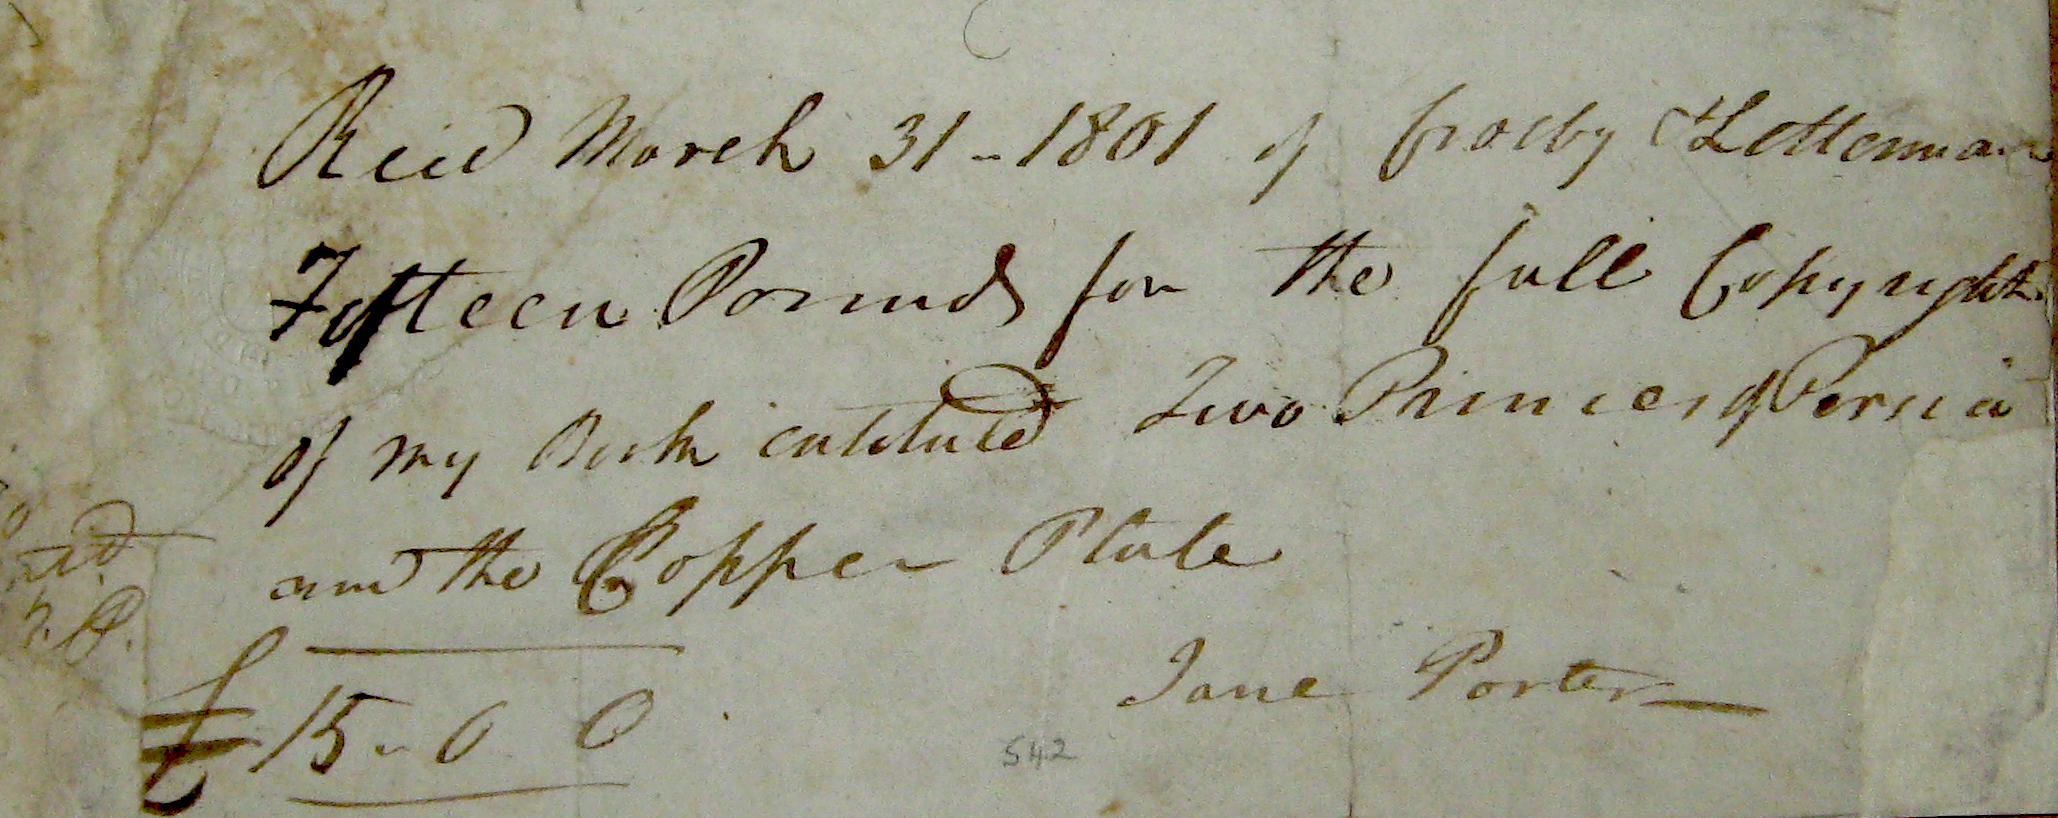 Recd March 31 - 1801 of Crosby & Letterman
Fifteen Pounds for the full Copyright
of my Book entituled Two Princes of Persia
and the Copper Plate
Jane Porter
£ 15 - 0 0
542